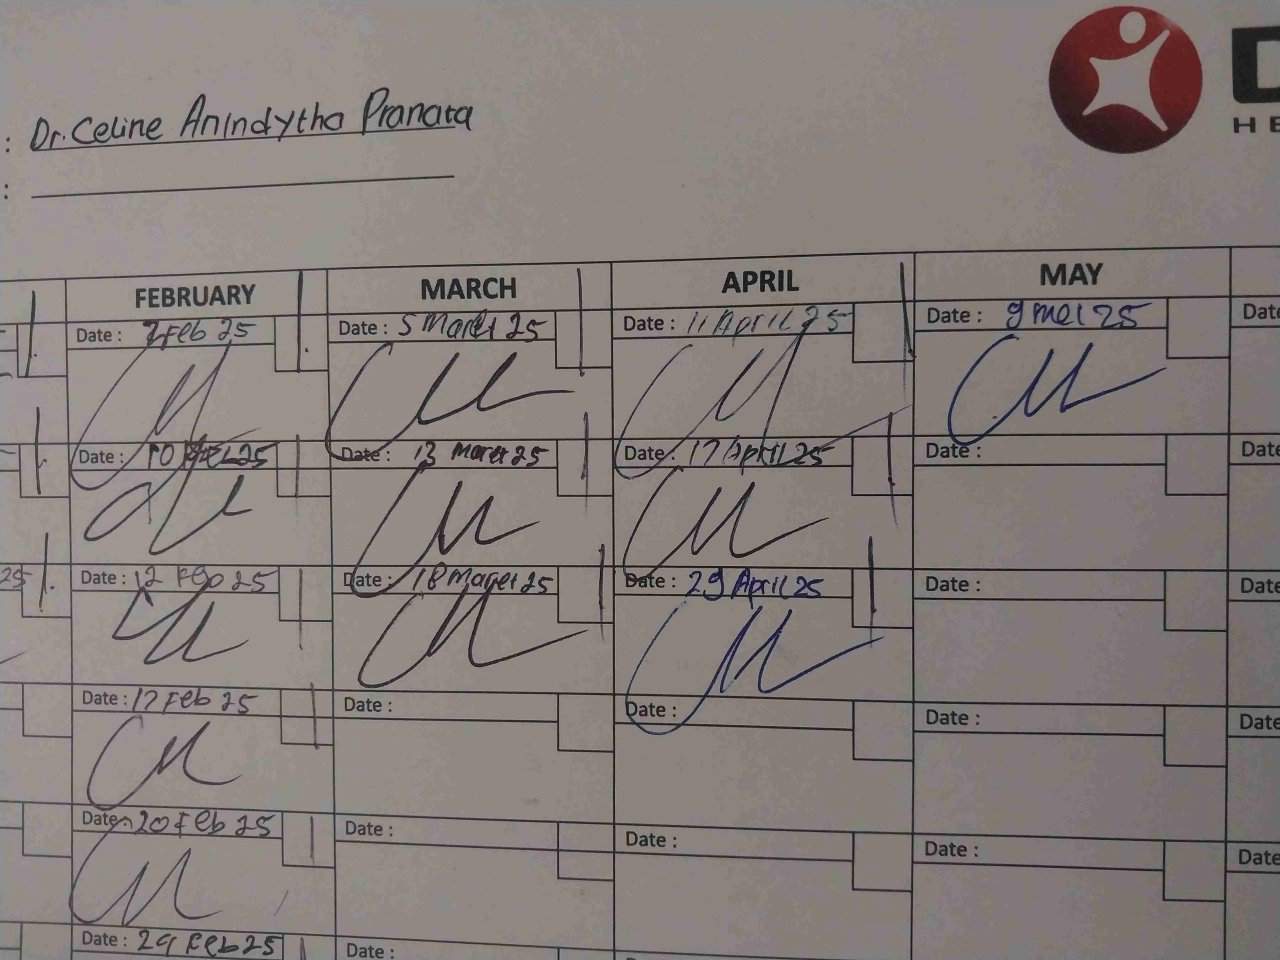 : Dr. Celine Anindytha Pranata
:
D
HE
FEBRUARY MARCH APRIL MAY
Date : 7 Feb 25 Date : 5 Maret 25 Date : 11 April 25 Date : 9 Mei 25 Date
Date : 10 25 Date : 13 Maret 25 Date : 17 April 25 Date : Date
25 Date : 12 Feb 25 Date : 18 Maret 25 Date : 29 April 25 Date : Date
Date : 17 Feb 25 Date : Date : Date : Date
Date : 20 Feb 25 Date : Date : Date : Date
Date : 24 Feb 25 Date :